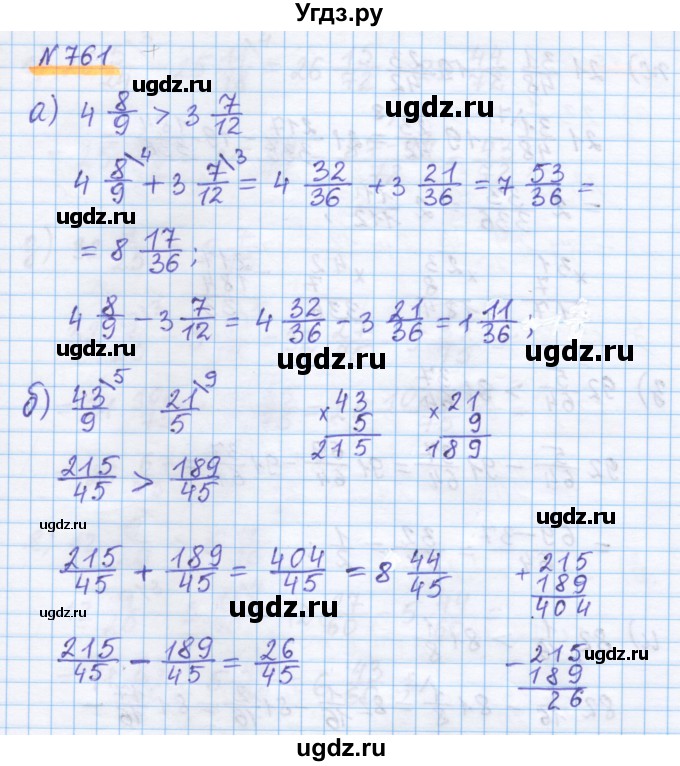 Угдз.ру
N 761
ugdz.ru
а) 4 8/9 > 3 7/12
ugdz.ru
4 8/9\4 + 3 7/12\3 = 4 32/36 + 3 21/36 = 7 53/36 =
ugdz.ru ugdz.ru
= 8 17/36;
4 8/9 - 3 7/12 = 4 32/36 - 3 21/36 = 1 11/36;
ugdz.ru ugdz.ru ugdz.ru
б) 43/9\5 21/5\9 × 43 5 215 × 21 9 189
215/45 > 189/45
ugdz.ru ugdz.ru
215/45 + 189/45 = 404/45 = 8 44/45 + 215 189 404
ugdz.ru ugdz.ru
215/45 - 189/45 = 26/45 - 215 189 26
ugdz.ru
ugdz.ru
ugdz.ru